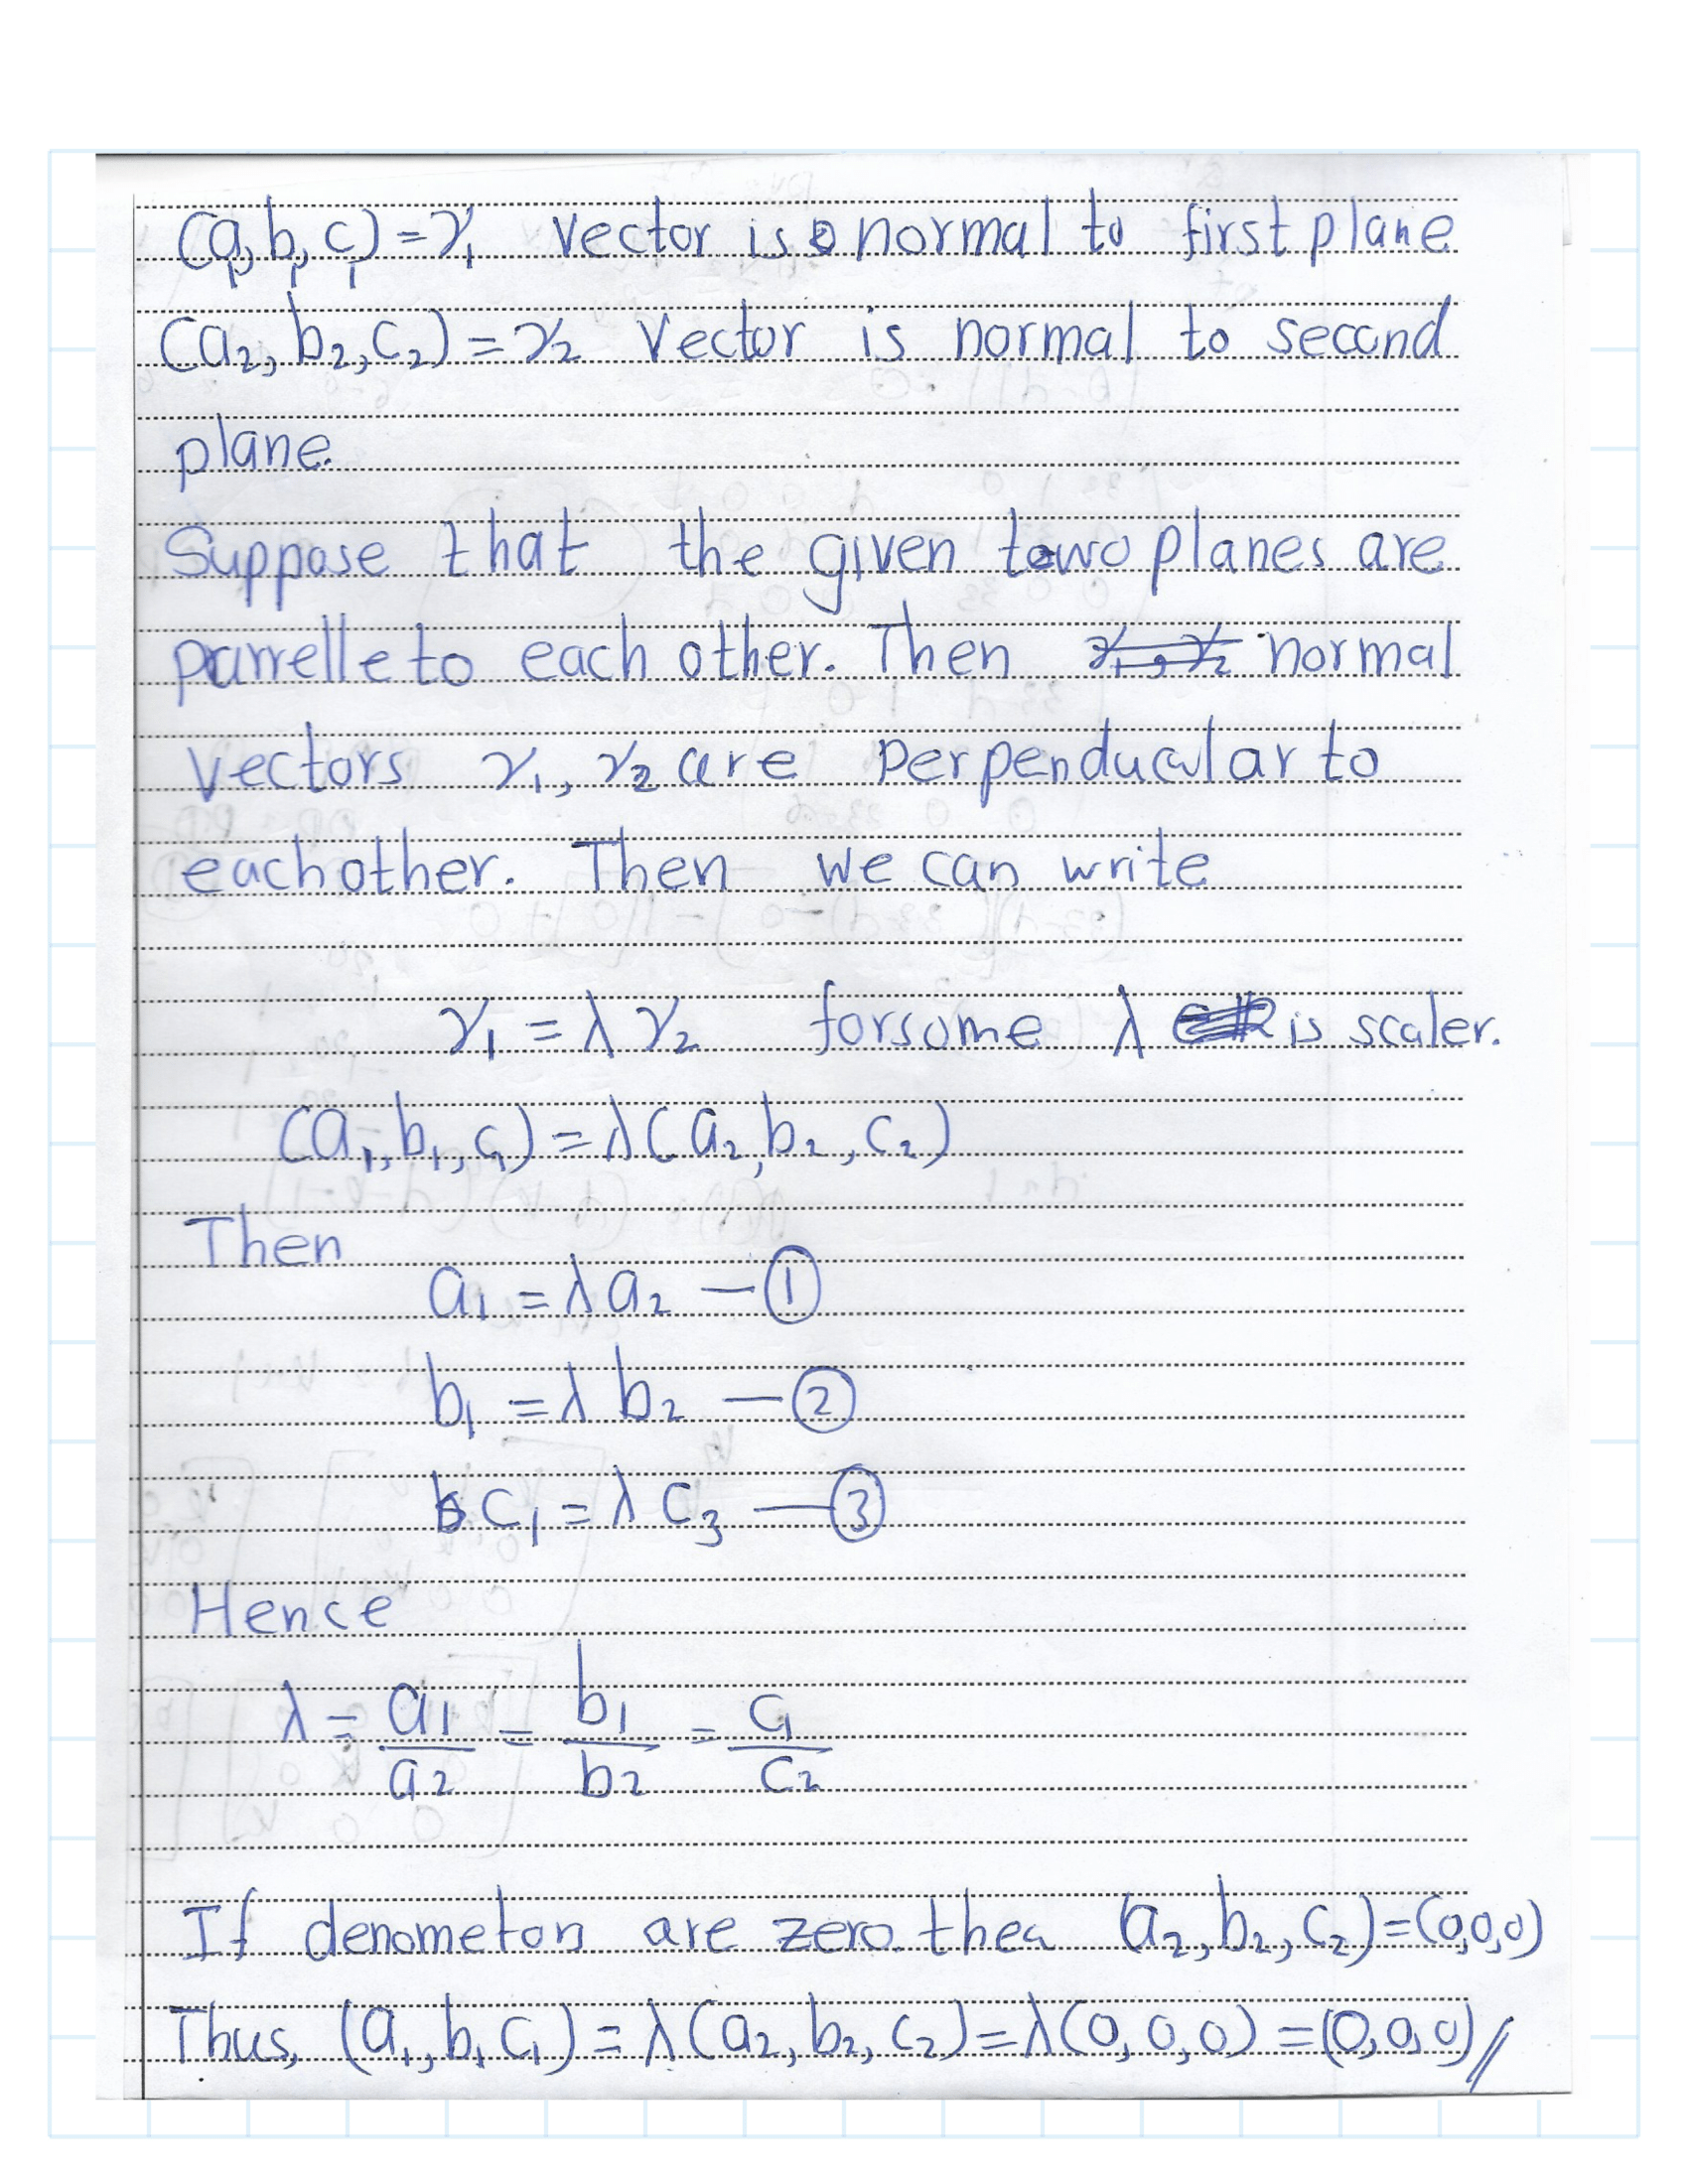 (a₁, b₁, c₁) = γ₁ vector is normal to first plane
(a₂, b₂, c₂) = γ₂ Vector is normal to second
plane.
Suppose that the given towo planes are
parrelle to each other. Then γ₁, γ₂ normal
vectors γ₁, γ₂ are perpenducular to
each other. Then we can write
γ₁ = λ γ₂ for some λ is scaler.
(a₁, b₁, c₁) = λ(a₂, b₂, c₂)
Then
a₁ = λ a₂ — ①
b₁ = λ b₂ — ②
c₁ = λ c₃ — ③
Hence
λ = a₁/a₂ = b₁/b₂ = c₁/c₂
If denometors are zero then (a₂, b₂, c₂) = (0,0,0)
Thus, (a₁, b₁ c₁) = λ(a₂, b₂, c₂) = λ(0, 0, 0) = (0, 0, 0) //